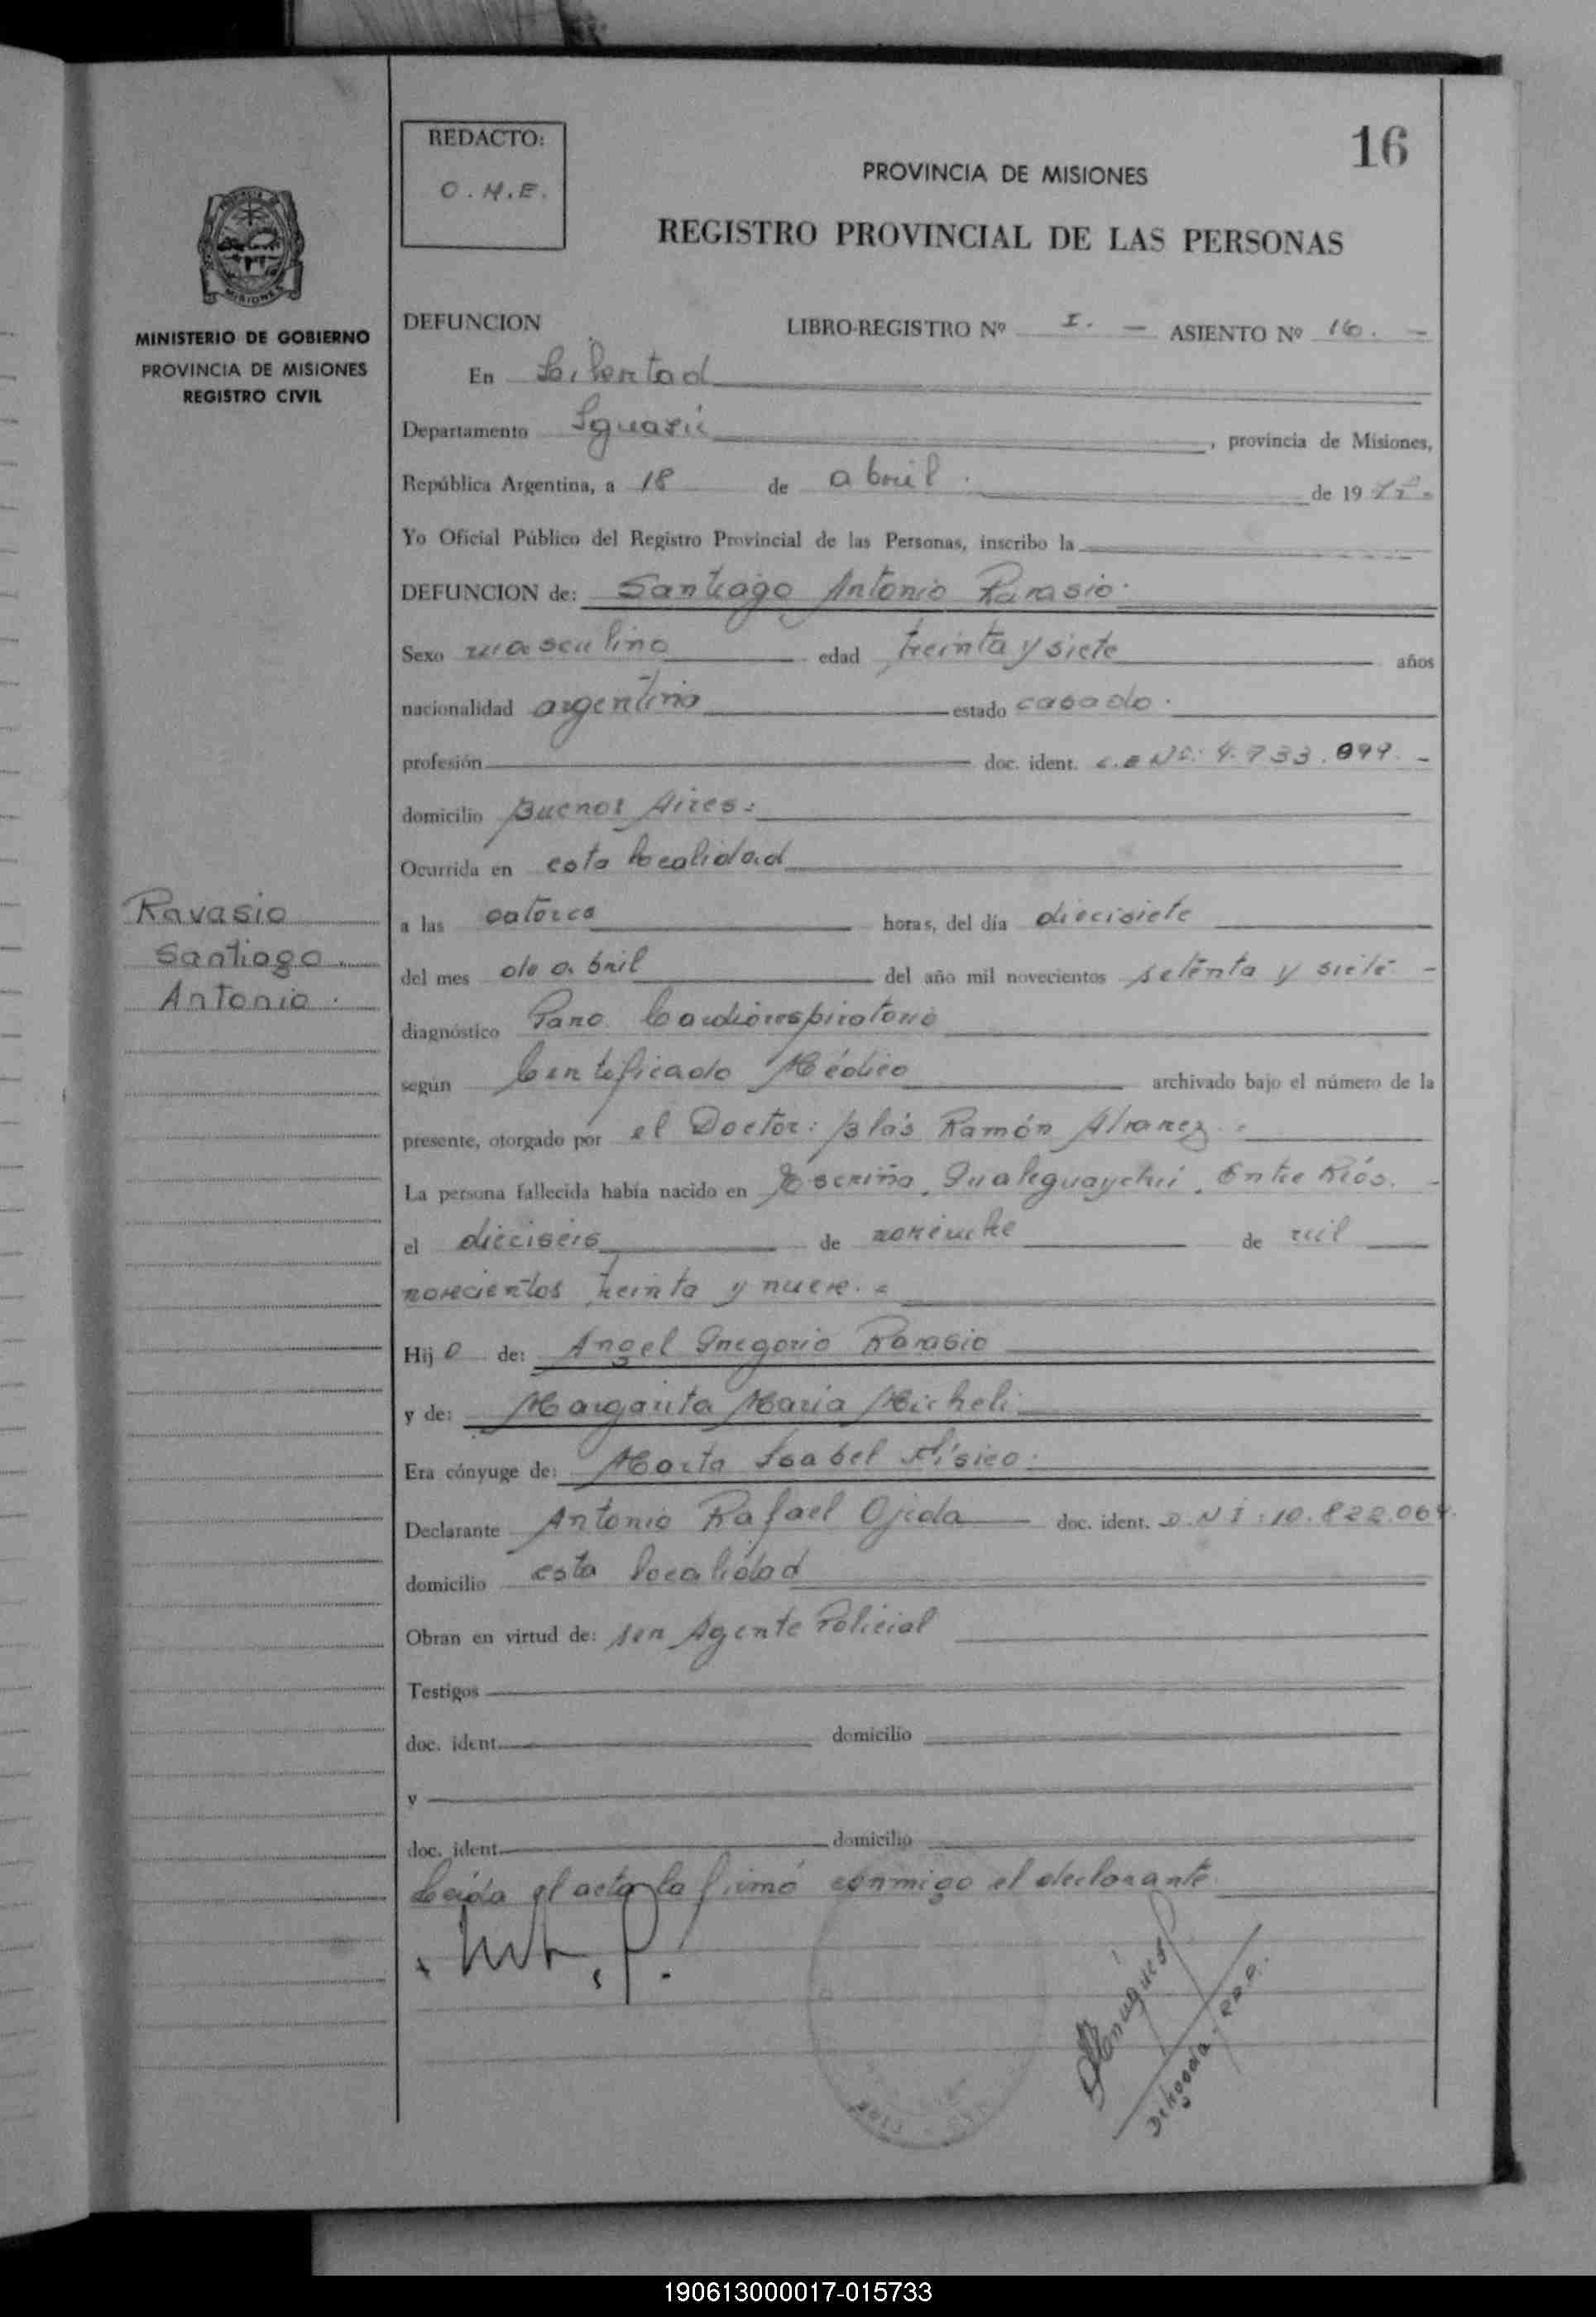 REDACTO:
O.M.E.
16
PROVINCIA DE MISIONES
REGISTRO PROVINCIAL DE LAS PERSONAS
MINISTERIO DE GOBIERNO
PROVINCIA DE MISIONES
REGISTRO CIVIL
DEFUNCION LIBRO-REGISTRO Nº I. - ASIENTO Nº 16. -
En Libertad
Departamento Iguazú, provincia de Misiones,
República Argentina, a 18 de abril. de 1977.
Yo Oficial Público del Registro Provincial de las Personas, inscribo la
DEFUNCION de: Santiago Antonio Ravasio.
Sexo masculino edad treinta y siete años
nacionalidad argentina estado casado.
profesión doc. ident. 4.733.099. -
domicilio Buenos Aires.
Ocurrida en esta localidad
Ravasio
Santiago
Antonio.
a las catorce horas, del día diecisiete
del mes de abril del año mil novecientos setenta y siete. -
diagnóstico Paro Cardiorespiratorio
según Certificado Médico archivado bajo el número de la
presente, otorgado por el Doctor: Blás Ramón Alvarez.
La persona fallecida había nacido en Escriña, Gualeguaychú, Entre Ríos. -
el dieciseis de noviembre de mil
novecientos treinta y nueve. =
Hijo de: Angel Gregorio Ravasio
y de: Margarita María Micheli
Era cónyuge de: Marta Isabel Físico.
Declarante Antonio Rafael Ojeda doc. ident. D.N.I: 10.822.064.
domicilio esta localidad
Obran en virtud de: ser Agente Policial
Testigos
doc. ident. domicilio
y
doc. ident. domicilio
Leída el acta la firmó conmigo el declarante.
190613000017-015733